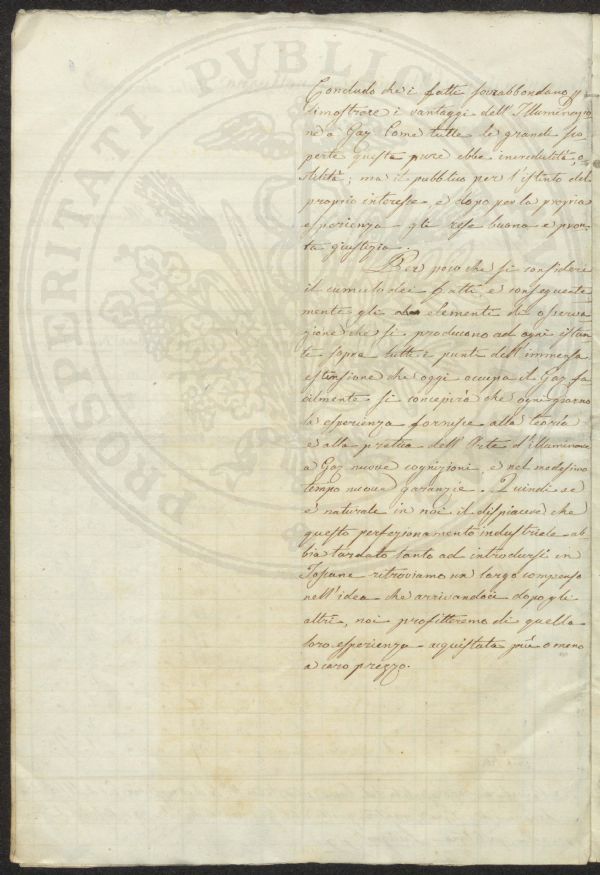 PROSPERITATI PVBLIC
Concludo che i fatti sovrabbondano p
dimostrare i vantaggi dell'Illuminazio
ne a Gaz Come tutte le grande sco
perte questa pure ebbe incredulità, o
stilità; ma il pubblico per l'istinto del
proprio interesse, e dopo per la propria
esperienza gli rese buona e pron
ta giustizia.
Per poco che si consideri
il cumulo dei fatti, e conseguente
mente gli elementi di osserva
zione che si producono ad ogni istan
te sopra tutti i punti dell'immensa
estensione che oggi occupa il Gaz fa
cilmente si concepirà che ogni giorno
la esperienza fornisce alla teoria
e alla pratica dell'Arte d'illuminare
a Gaz nuove cognizioni, e nel medesimo
tempo nuove garanzie. Quindi se
è naturale in noi il dispiacere che
questo perfezionamento industriale ab
bia tardato tanto ad introdursi in
Toscana ritroviamo un largo compenso
nell'idea che arrivandoci dopo gli
altri, noi profitteremo di quella
loro esperienza acquistata più o meno
a caro prezzo.